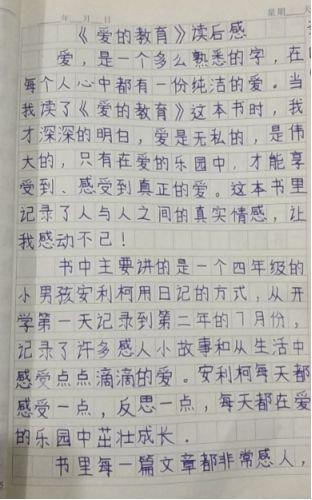 年 月 日 星期 天
《爱的教育》读后感
爱,是一个多么熟悉的字,在
每个人心中都有一份纯洁的爱。当
我读了《爱的教育》这本书时,我
才深深的明白,爱是无私的,是伟
大的,只有在爱的乐园中,才能享
受到、感受到真正的爱。这本书里
记录了人与人之间的真实情感,让
我感动不已!
书中主要讲的是一个四年级的
小男孩安利柯用日记的方式,从开
学第一天记录到第二年的7月份,
记录了许多感人小故事和从生活中
感受点点滴滴的爱。安利柯每天都
感受一点,反思一点,每天都在爱
的乐园中茁壮成长.
书里每一篇文章都非常感人,